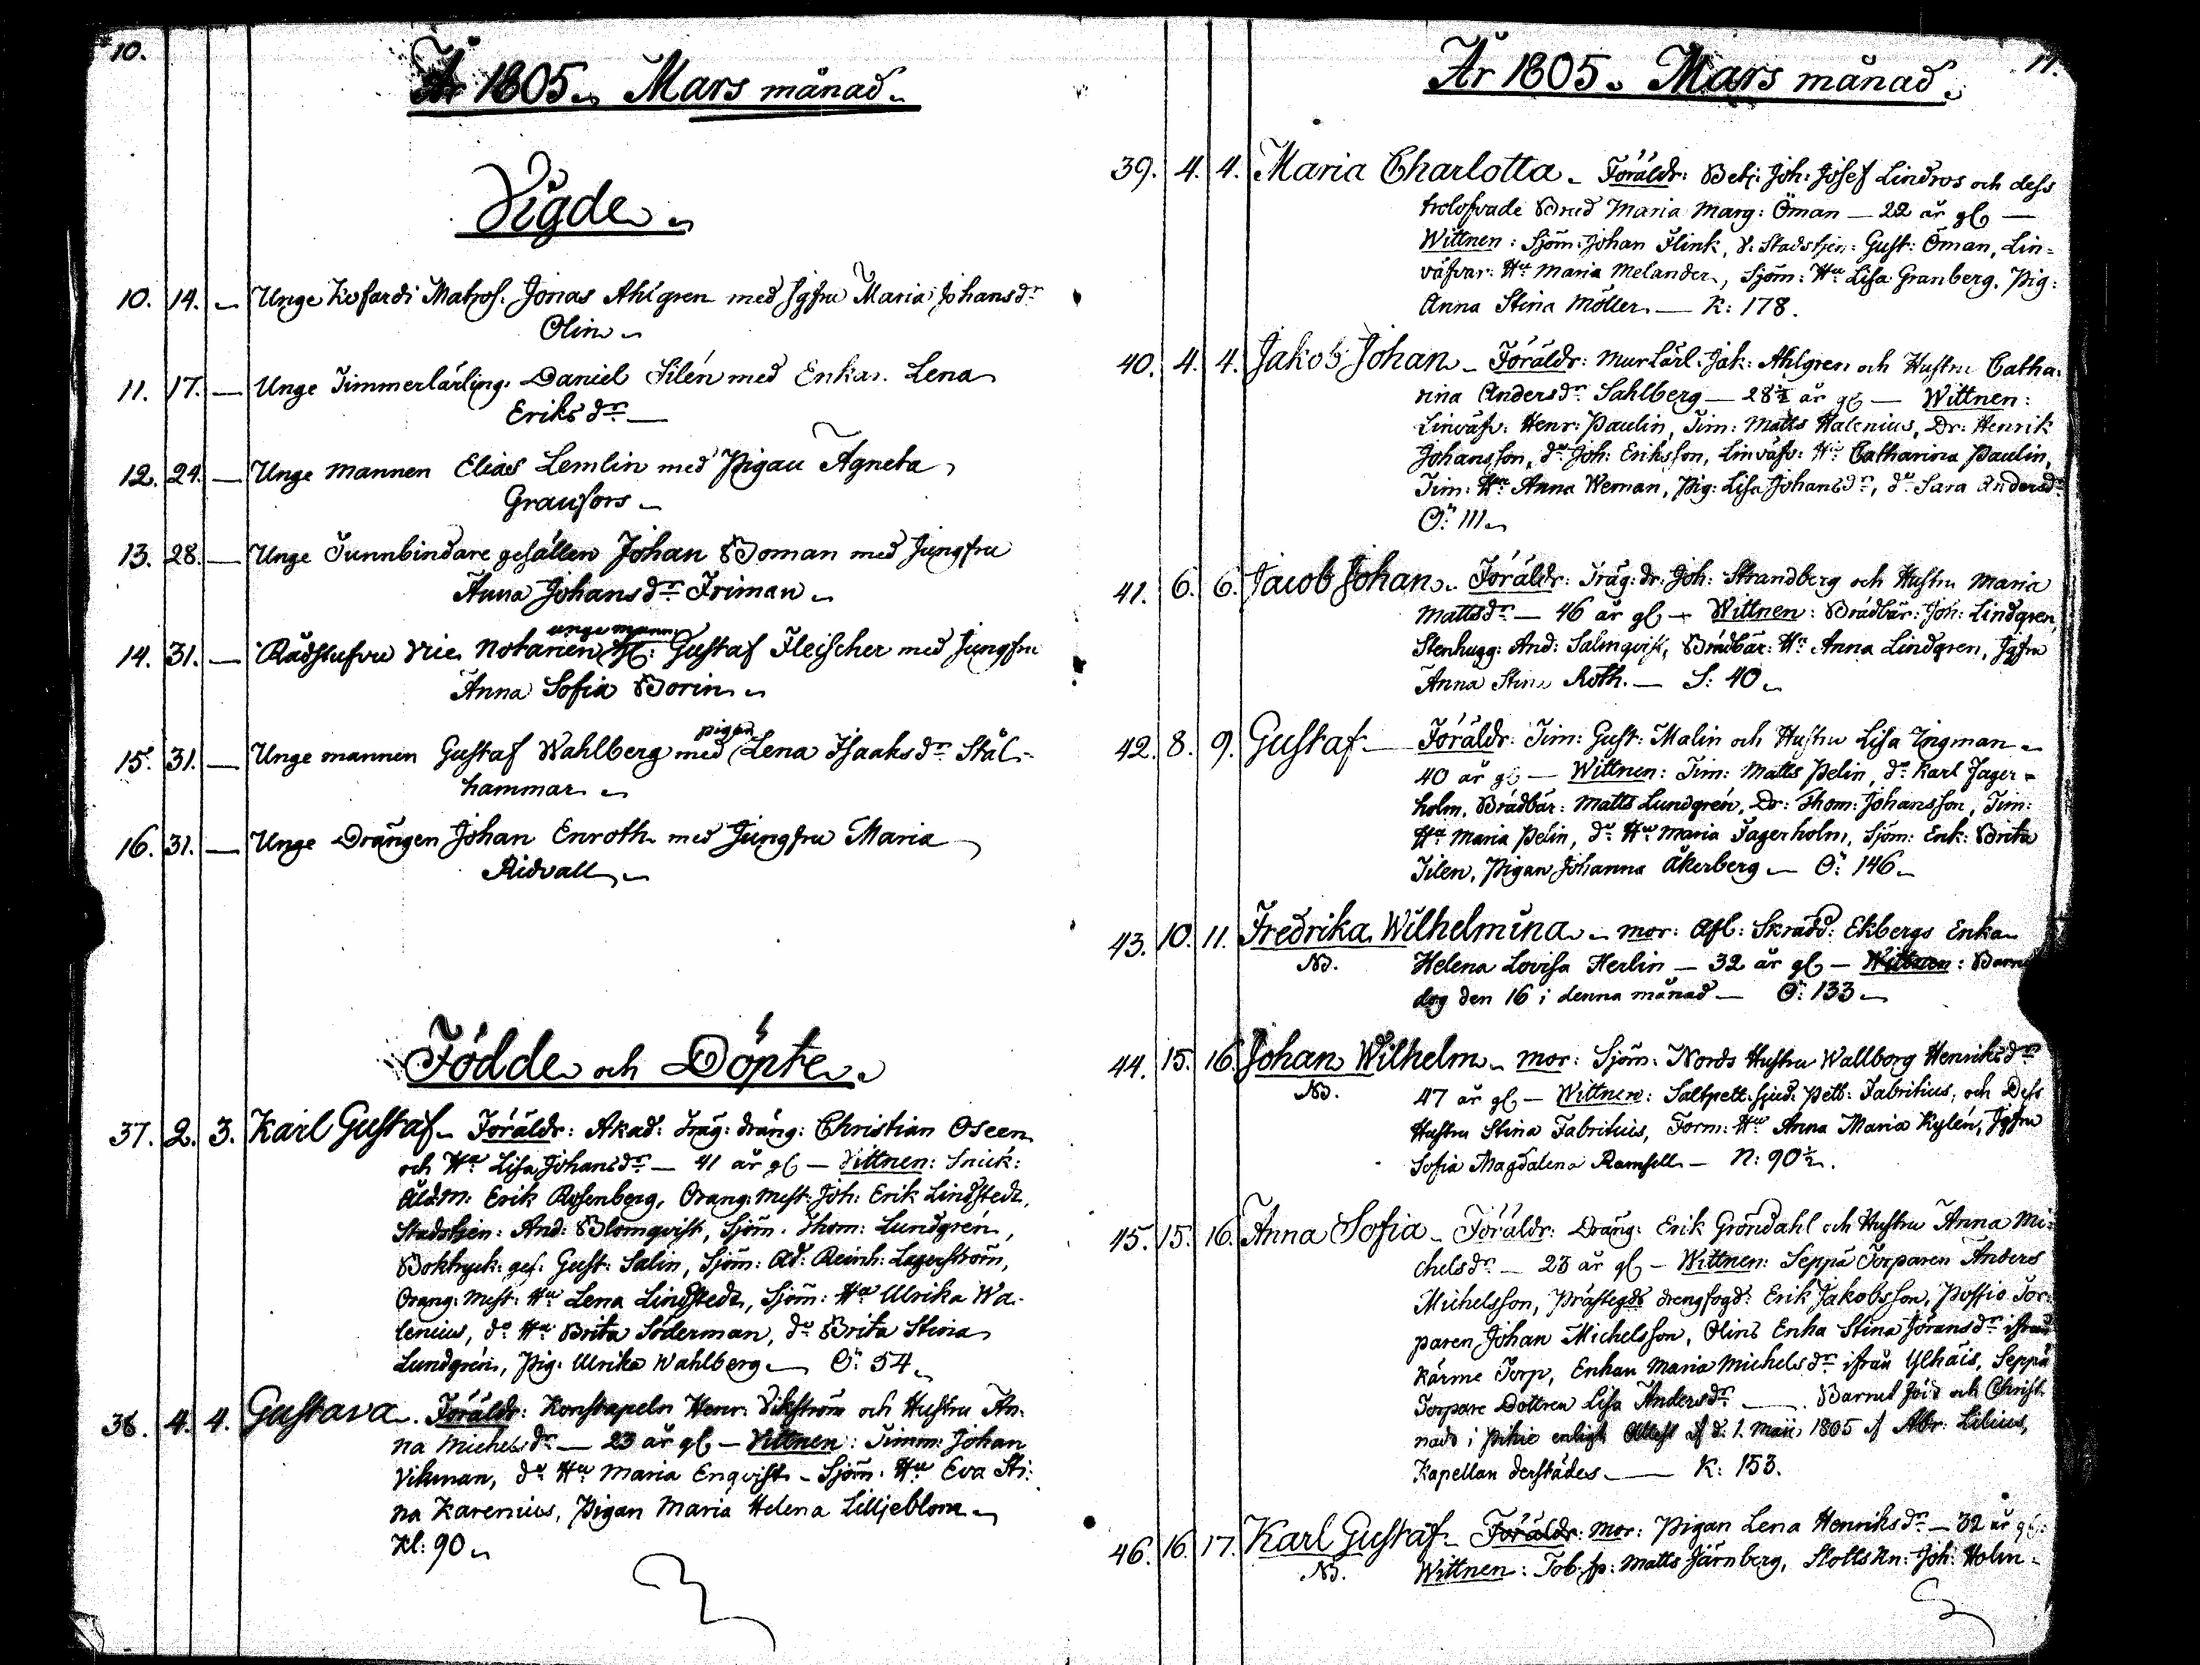 10.
År 1805. Mars månad.
Vigde.
10. 14. — Unge Kofardi Matros. Jonas Ahlgren med Jgfru Maria Johansdr
Olin
11. 17. — Unge Timmerlärling. Daniel Silén med Enkan. Lena
Eriksdr —
12. 24. — Unge mannen Elias Lemlin med Pigan Agneta
Granfors
13. 28. — Unge Tunnbindare gesällen Johan Boman med Jungfru
Anna Johansdr Friman
unge mann
14. 31. — Rådstufvu Vice Notarien Gustaf Fleischer med Jungfru
Anna Sofia Borin
pigan
15. 31. — Unge mannen Gustaf Wahlberg med Lena Isaaksdr Stål-
hammar
16. 31. — Unge Drängen Johan Enroth med Jungfru Maria
Ridvall
Födde och Döpte.
37. 2. 3. Karl Gustaf. Föräldr: Akad: Träg: dräng: Christian Oseen
och Hu Lisa Johansdr — 41 år gl — Vittnen: Snick:
Åld:M: Erik Rosenberg, Orang: Mest: Joh: Erik Lindstedt,
Stadstjen: And: Blomqvist, Sjöm: Thom: Lundgrén,
Boktryck: ges: Gust: Salin, Sjöm: Ad: Reinh: Lagerström,
Orang: Mest: Hu Lena Lindstedt, Sjöm: Hu Ulrika Wa-
lenius, do Hu Brita Söderman, do Brita Stina
Lundgrén, Pig: Ulrika Wahlberg — Ö: 54
38. 4. 4. Gustava. Föräldr: Konstapeln Henr: Vikström och Hustru An-
na Michelsdr — 23 år gl — Vittnen: Timm: Johan
Vikman, do Hu Maria Enqvist — Sjöm: Hu Eva Sti:
na Karenius, Pigan Maria Helena Lilljeblom
Kl: 90
11.
År 1805. Mars månad.
39. 4. 4. Maria Charlotta. Föräldr: Betj: Joh: Josef Lindros och dess
trolofvade Brud Maria Marg: Öman — 22 år gl —
Wittnen: Sjöm: Johan Flink, V. Stadstjen: Gust: Öman, Lin-
väfvar: Hu Maria Melander, Sjöm: Hu Lisa Granberg, Pig:
Anna Stina Möller — K: 178.
40. 4. 4. Jakob Johan. Föräldr: MurLärl: Jak: Ahlgren och Hustru Catha-
rina Andersdr Sahlberg — 28½ år gl — Wittnen:
Linväfv: Henr: Paulin, Tim: Matts Halenius, Dr: Henrik
Johansson, do Joh: Eriksson, Linväfv: Hu Catharina Paulin,
Tim: Hu Anna Weman, Pig: Lisa Johansdr, do Sara Andersdr
Ö: 111
41. 6. 6. Jacob Johan. Föräldr: Träg: dr: Joh: Strandberg och Hustru Maria
Mattsdr — 46 år gl — Wittnen: Brädbär: Joh: Lindgren,
Stenhugg: And: Salmqvist, Brädbär: Hu Anna Lindgren, Jgfru
Anna Stina Roth. — S: 40
42. 8. 9. Gustaf — Föräldr: Tim: Gust: Malin och Hustru Lisa Zigman
40 år gl — Wittnen: Tim: Matts Pelin, do Karl Fager-
holm, Brädbär: Matts Lundgrén, Dr: Thom: Johansson, Tim:
Hu Maria Pelin, do Hu Maria Fagerholm, Sjöm: Enk: Brita
Silen, Pigan Johanna Åkerberg — Ö: 146
43. 10. 11. Fredrika Wilhelmina. mor: Afl: Skrädd: Ekbergs Enka
NB. Helena Lovisa Herlin — 32 år gl — Wittnen: Barnet
dog den 16 i denna månad — Ö: 133
44. 15. 16. Johan Wilhelm. mor: Sjöm: Nords Hustru Wallborg Henriksdr
NB. 47 år gl — Wittnen: Saltpett. sjud: Pett: Fabritius, och Dess
Hustru Stina Fabritius, Form: Hu Anna Maria Kylén, Jgfru
Sofia Magdalena Ramsell — N: 90½.
45. 15. 16. Anna Sofia. Föräldr: Dräng: Erik Gröndahl och Hustru Anna Mi-
chelsdr — 23 år gl — Wittnen: Seppä Torparen Anders
Michelsson, Prästegds drengfogd: Erik Jakobsson, Possio Tor-
paren Johan Michelsson, Olins Enka Stina Jöransdr ifrån
Kärme Torp, Enkan Maria Michelsdr ifrån Ylhäis, Seppä
Torpare Dottren Lisa Andersdr — Barnet född och Christ-
nadt i Pikie enligt Attest af d: 1. Maii 1805 af Abr: Lilius,
Kapellan derstädes — K: 153.
46. 16. 17. Karl Gustaf. Föräldr: Mor: Pigan Lena Henriksdr — 32 år gl:
NB. Wittnen: Tob: sp: Matts Järnberg, Slotts Kn: Joh: Holm-